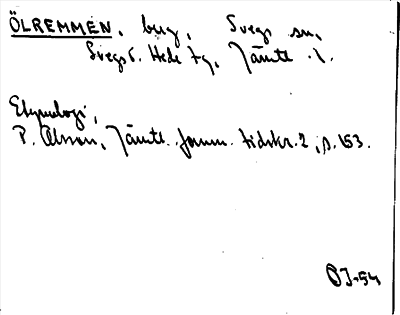 ÖLREMMEN, berg, Svegs sn,
Svegs o. Hede tg, Jämtl. l.
Etymologi,
P. Olsson, Jämtl. fornm. tidskr. 2, s. 153.
ÖJ-54